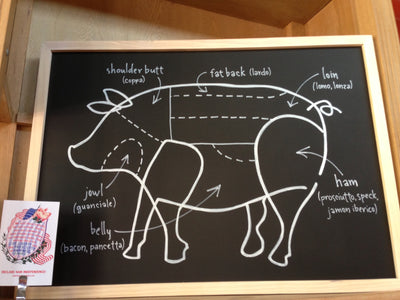 shoulder butt
(coppa)
fat back (lardo)
loin
(lomo, lonza)
jowl
(guanciale)
belly
(bacon, pancetta)
ham
(prosciutto, speck,
jamon iberico)
DECLARE HAM INDEPENDENCE!